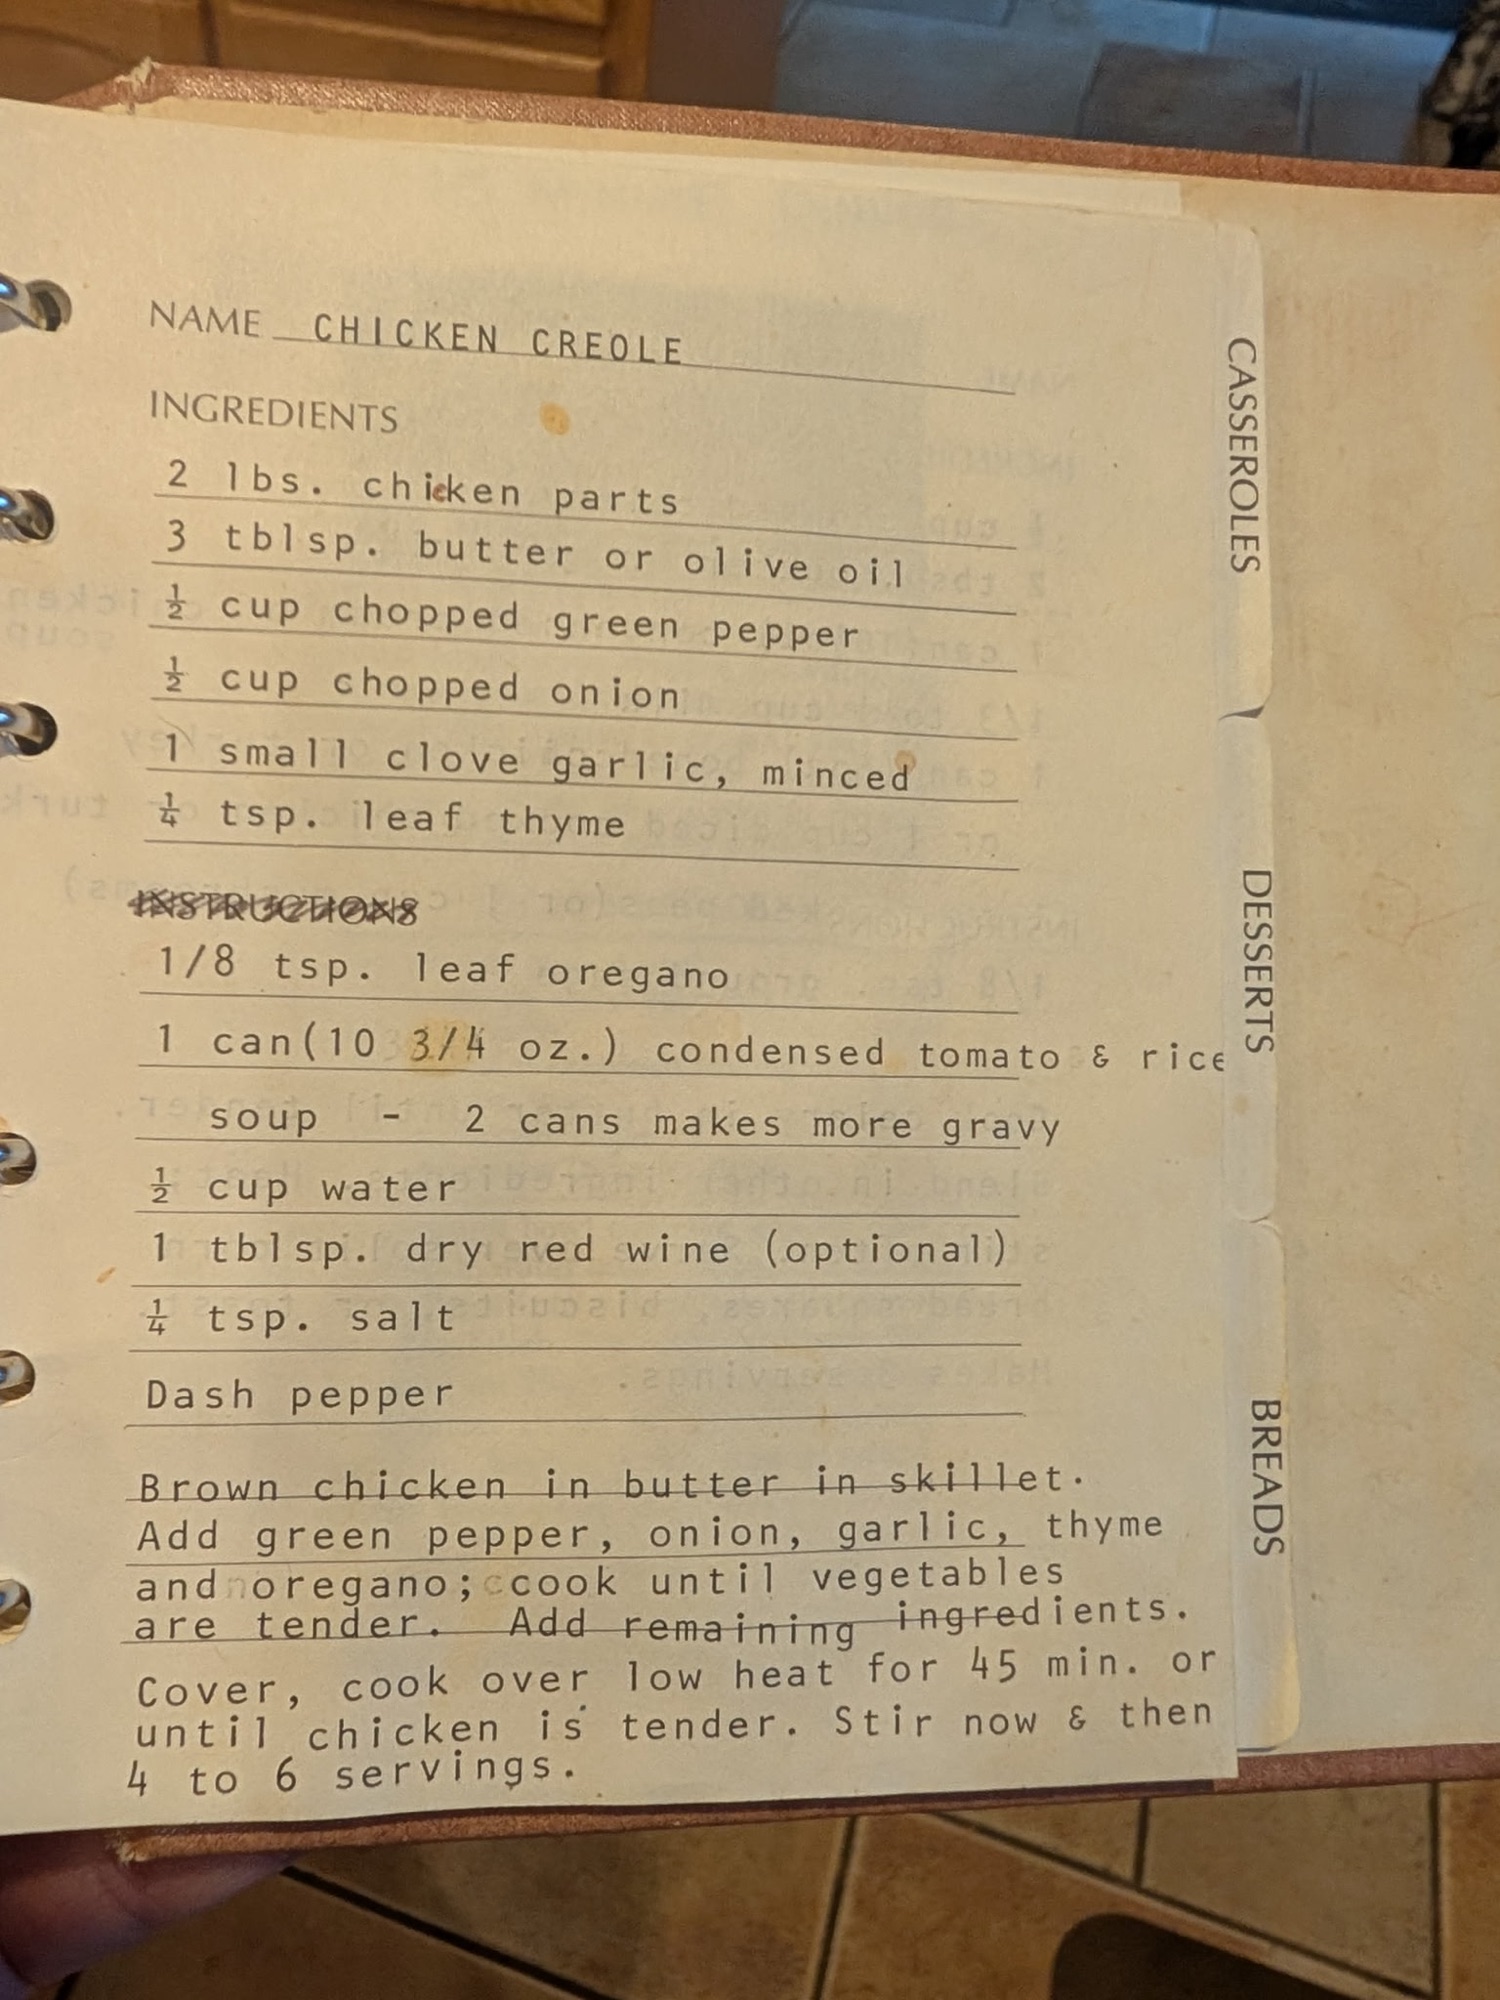 NAME CHICKEN CREOLE
INGREDIENTS
2 lbs. chicken parts
3 tblsp. butter or olive oil
½ cup chopped green pepper
½ cup chopped onion
1 small clove garlic, minced
¼ tsp. leaf thyme
INSTRUCTIONS
1/8 tsp. leaf oregano
1 can(10 3/4 oz.) condensed tomato & rice
soup - 2 cans makes more gravy
½ cup water
1 tblsp. dry red wine (optional)
¼ tsp. salt
Dash pepper
Brown chicken in butter in skillet.
Add green pepper, onion, garlic, thyme
and oregano; cook until vegetables
are tender. Add remaining ingredients.
Cover, cook over low heat for 45 min. or
until chicken is tender. Stir now & then
4 to 6 servings.
CASSEROLES
DESSERTS
BREADS